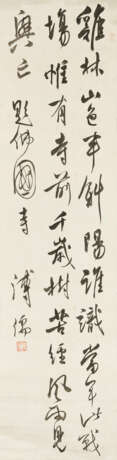 雞林山色半斜陽誰識當年此戰
場惟有寺前千歲樹苦經風雨見
興亡 題佛國寺
溥儒